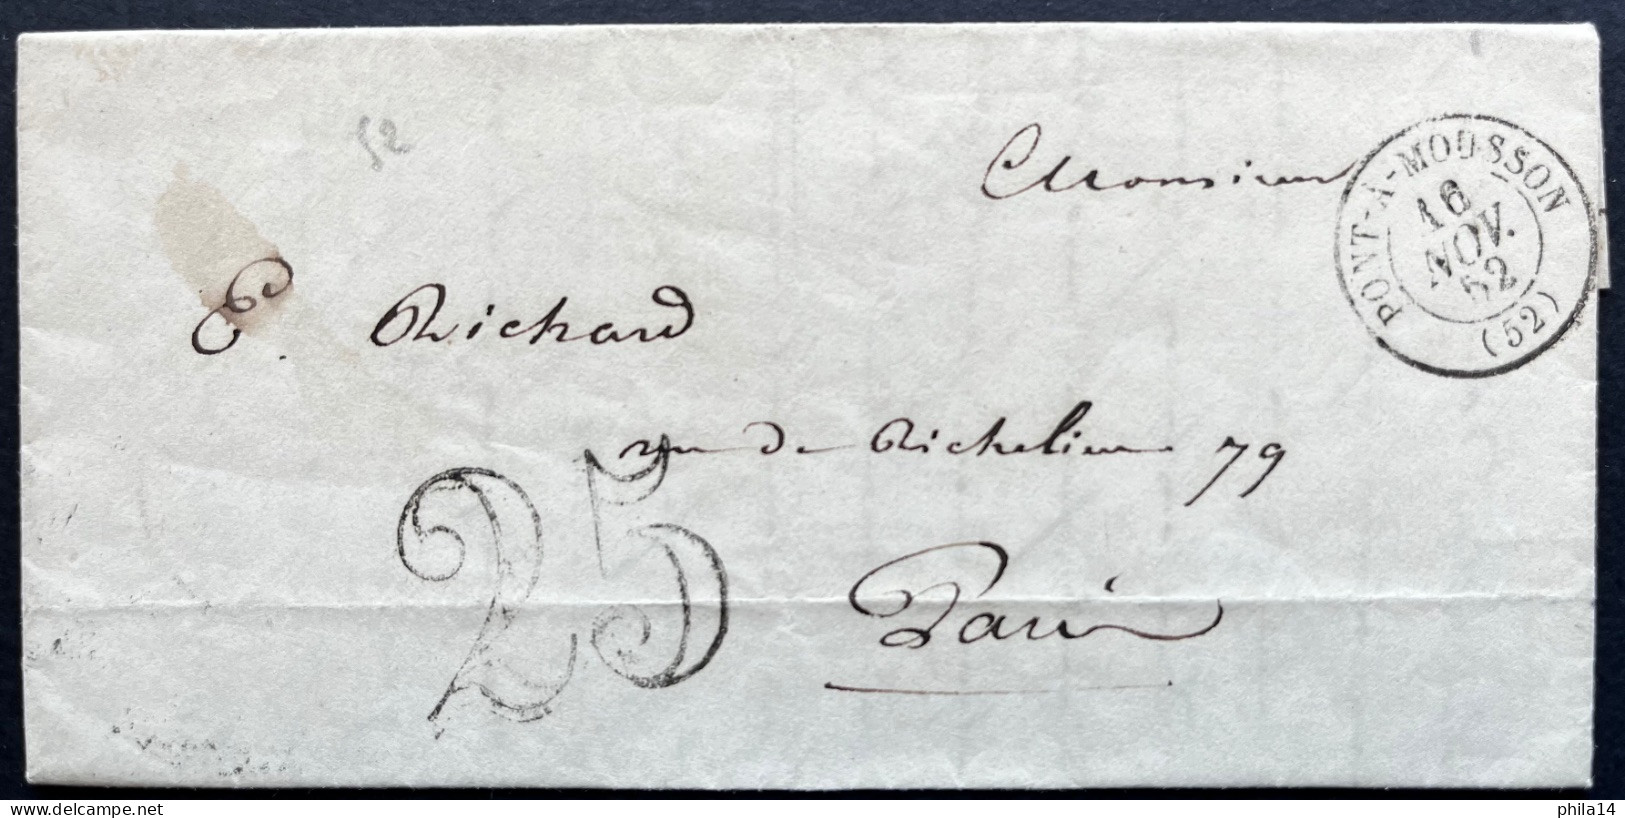 52
Monsieur
PONT-À-MOUSSON
16
NOV.
52
(52)
E. Richard
rue de Richelieu 79
25
Paris
phila14